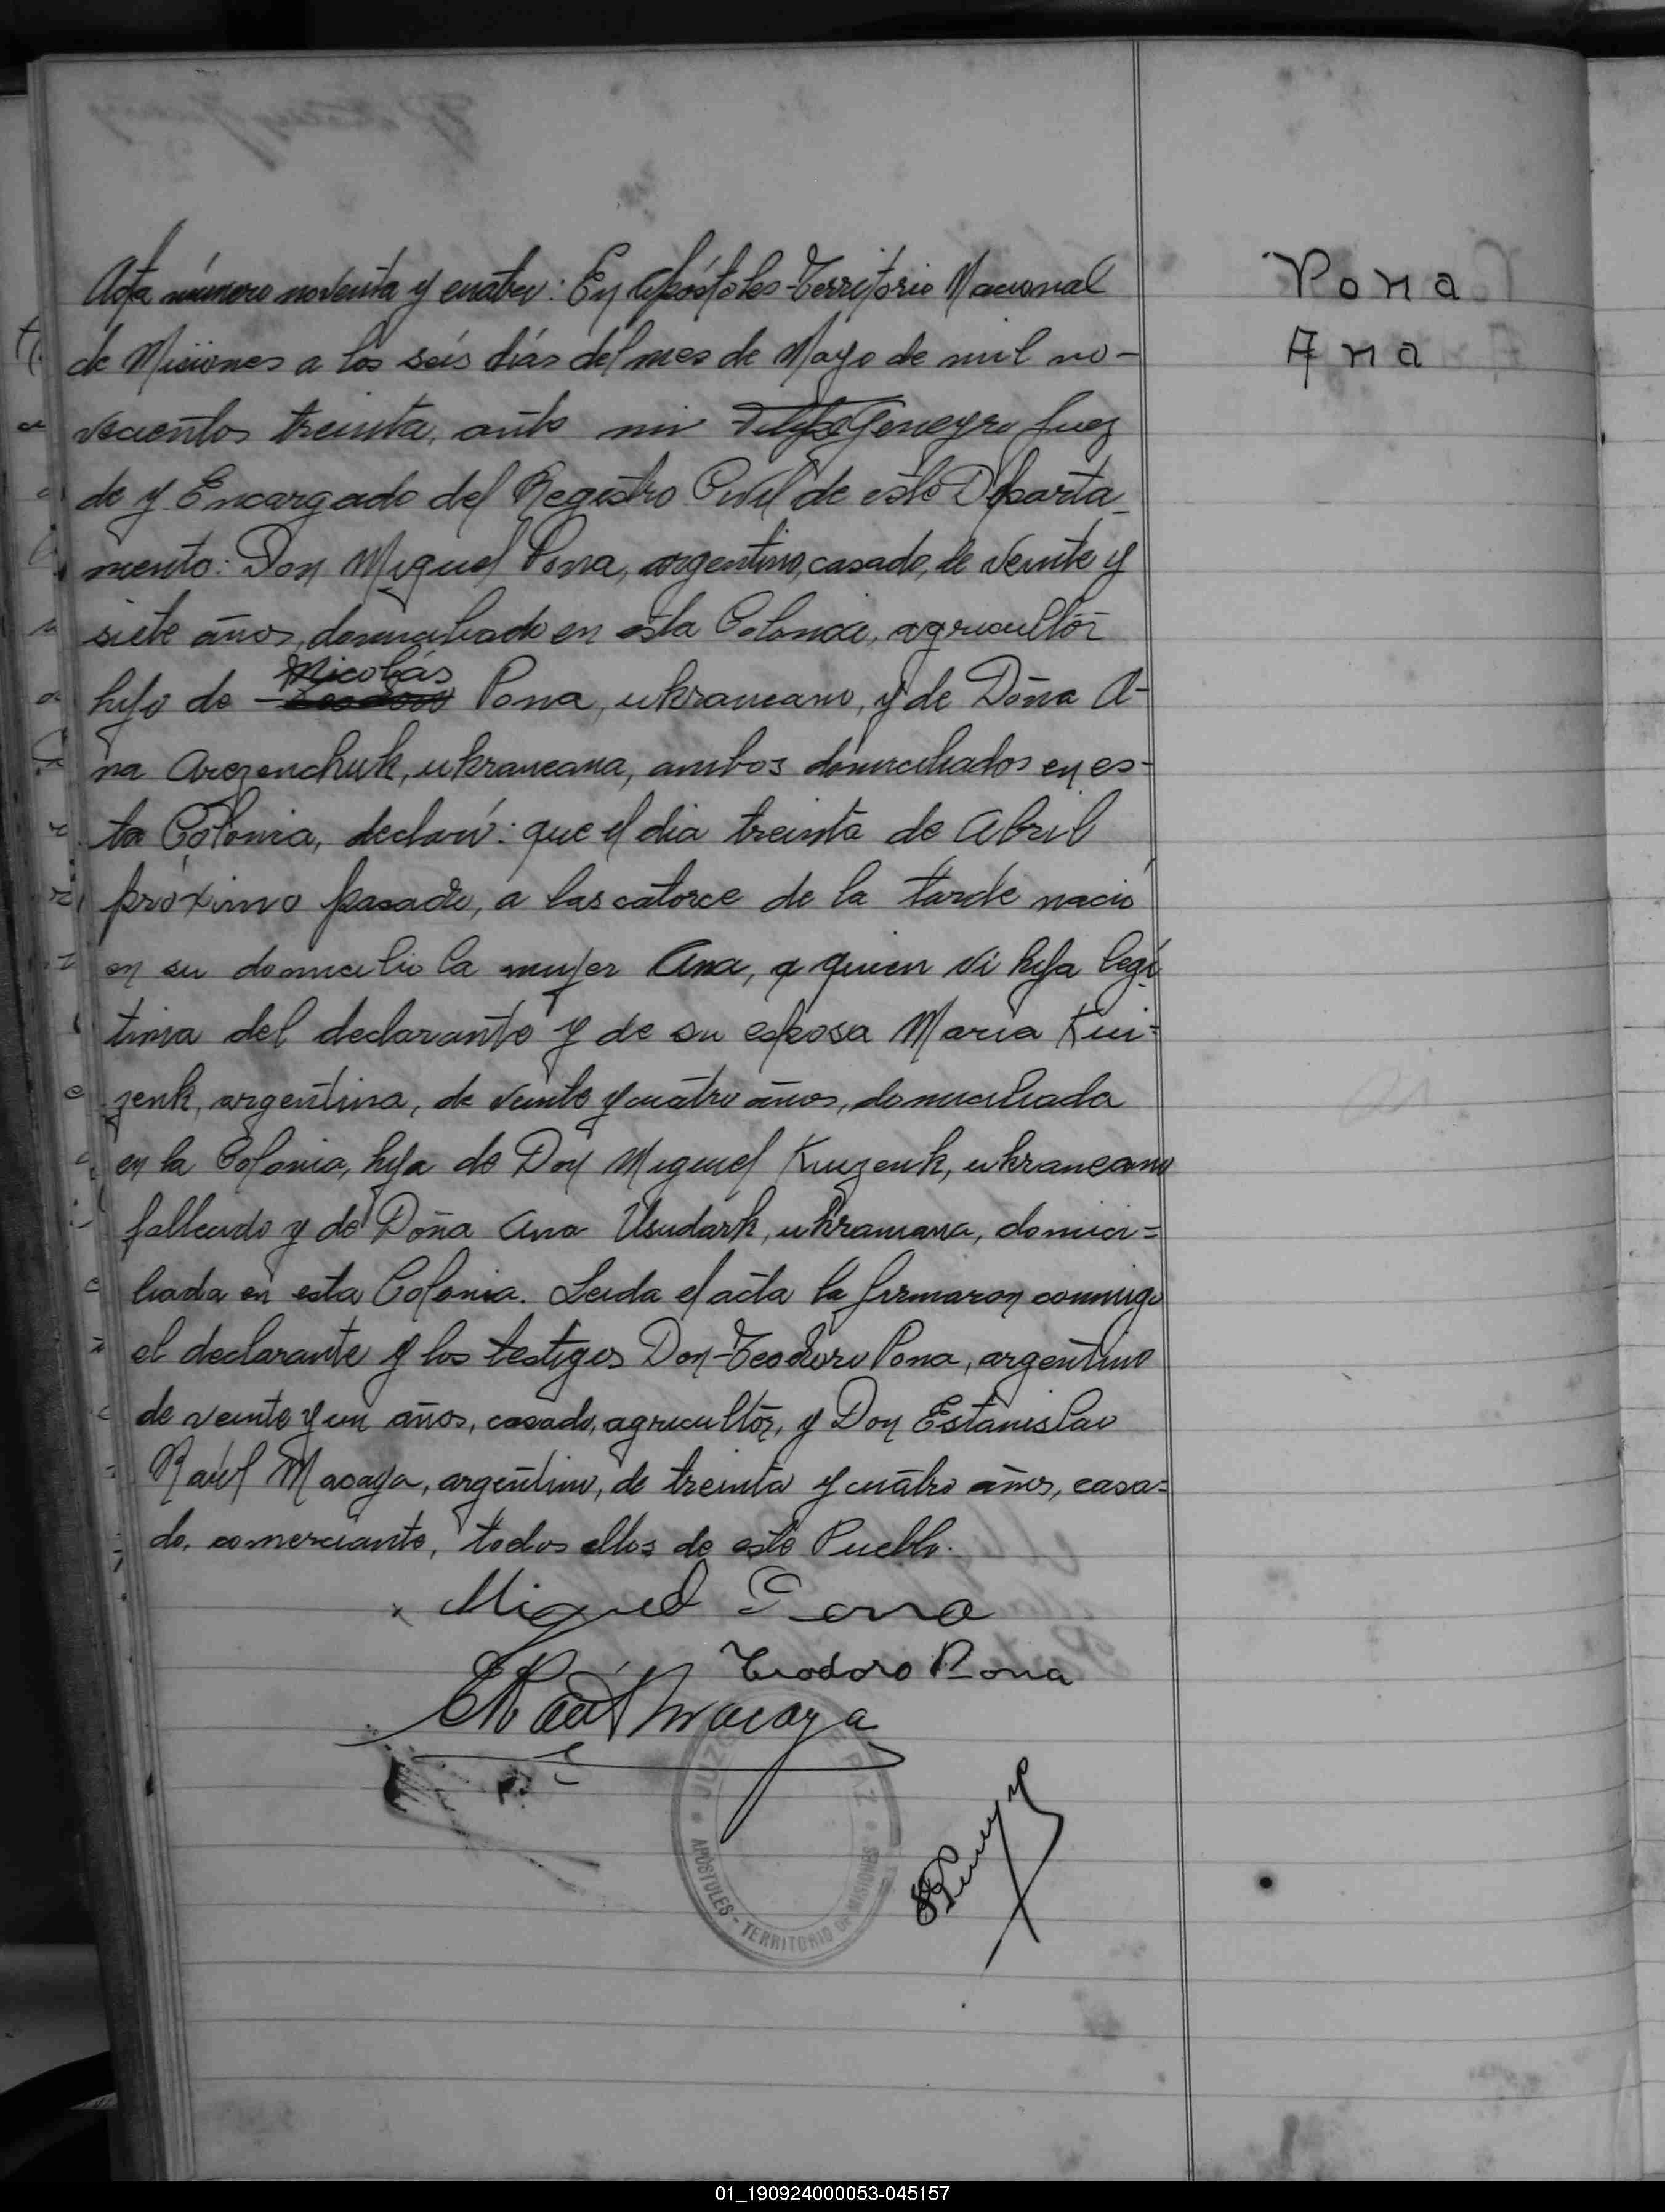 Pona
Ana
Acta número noventa y cuatro: En Apóstoles Territorio Nacional
de Misiones a los seis días del mes de Mayo de mil no-
vecientos treinta, ante mi Geneyro Juez
de y Encargado del Registro Civil de este Departa-
mento: Don Miguel Pona, argentino, casado, de veinte y
siete años, domiciliado en esta Colonia, agricultor
Nicolás
hijo de Pona, ukraneano, y de Doña A-
na Arezenchuk, ukraneana, ambos domiciliados en es-
ta Colonia, declaró: que el dia treinta de Abril
próximo pasado, a las catorce de la tarde nació
en su domicilio la mujer Ana, a quien vi hija legí
tima del declarante y de su esposa Maria Kui=
zenk, argentina, de veinte y cuatro años, domiciliada
en la Colonia, hija de Don Miguel Kuizenk, ukraneano
fallecido y de Doña Ana Usudark, ukraneana, domici=
liada en esta Colonia. Leida el acta la firmaron conmigo
el declarante y los testigos Don Teodoro Pona, argentino
de veinte y un años, casado, agricultor, y Don Estanislao
Raúl Macaya, argentino, de treinta y cuatro años, casa=
do, comerciante, todos ellos de este Pueblo.
Miguel Pona
Teodoro Pona
E Raúl Macaya
JUZGADO DE PAZ
APOSTOLES - TERRITORIO DE MISIONES
01_190924000053-045157